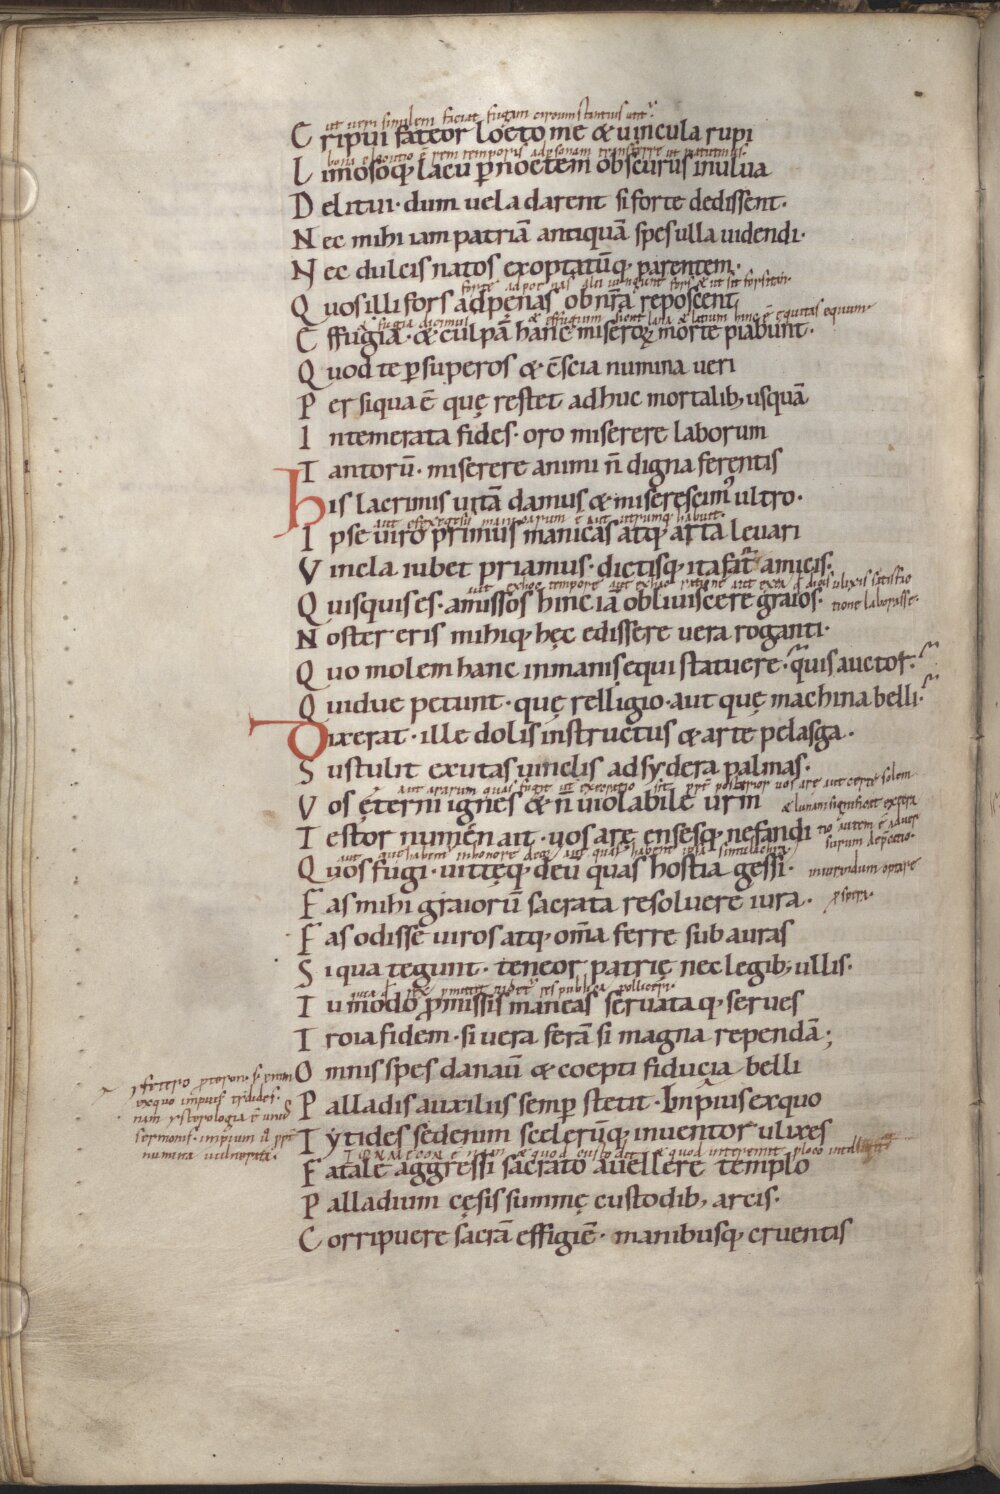 ut ueri similem faciat fugam circumstantiis utit᷑
C ripui fateor loeto me & uincula rupi
bona elocutio ē rem temporis ad psonam transferre
L imosoq; lacu p noctem obscurus inulua
D elitui· dum uela darent si forte dedissent·
N ec mihi iam patriā antiquā spes ulla uidendi·
N ec dulcis natos exoptatūq; parentem·
forte ad poenas alii iungunt fors & ut sit forsitan·
Q uos illi fors ad penas ob nr̄a reposcent
& effugium
E ffugia· & culpā hanc miseroꝝ morte piabunt·
Q uod te p superos & c̄scia numina ueri
P er siqua ē quę restet adhuc mortalib; usquā
I ntemerata fides· oro miserere laborum
T antorū· miserere animi n̄ digna ferentis
H is lacrimis uitā damus & miserescim᷒ ultro·
aut utrumq; habuit·
I pse uiro primus manicas atq; arta leuari
V incla iubet priamus· dictisq; ita fat᷑ amicis·
aut ex hoc tempore aut ex hac ratione
Q uisquis es· amissos hinc iā obliuiscere graios·
tione laborasse·
N oster eris mihiq; hęc edissere uera roganti·
Q uo molem hanc inmanis equi statuere· quis auctor·
Q uidue petunt· quę relligio· aut quę machina belli·
D ixerat· ille dolis instructus & arte pelasga·
S ustulit exutas uinclis ad sydera palmas·
V os ęterni ignes & n̄ uiolabile urm
& lunam significat
T estor numen ait· uos arę ensesq; nefandi
Q uos fugi· uittęq; deū quas hostia gessi·
F as mihi graiorū sacrata resoluere iura·
F as odisse uiros atq; om̄a ferre sub auras
S iqua tegunt· teneor patrię nec legib; ullis·
T u modo p̄missis maneas seruataq; serues
T roia fidem· si uera ferā si magna rependā;
O mnis spes danaū & coepti fiducia belli
P alladis auxiliis semp stetit· Impius ex quo
T ytides sed enim scelerūq; inuentor ulixes
F atale aggressi sacrato auellere templo
P alladium cęsis summę custodib; arcis·
C orripuere sacrā effigiē· manibusq; cruentis
ex quo impius tidides·
nam ysterologia ē unius
sermonis·
numina uulnerata·